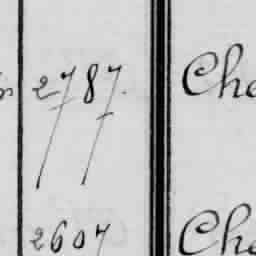 2787. Che
2607 Che